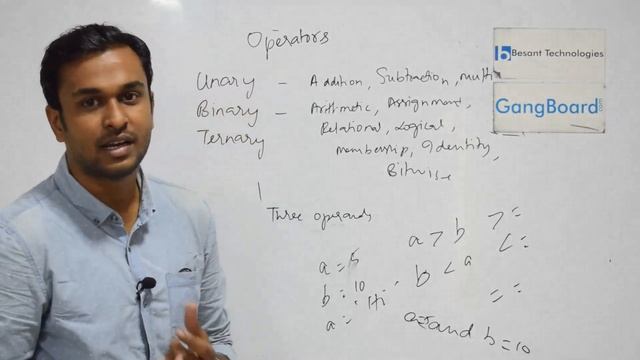 Operators
Besant Technologies
GangBoard.com
Unary - Addition, Subtraction, multi
Binary - Arithmetic, Assignment,
Ternary Relational, Logical,
membership, Identity,
Bitwise
Three operands
a > b >=
a = 5 b < a <=
b = 10
a =
a=5 and b=10